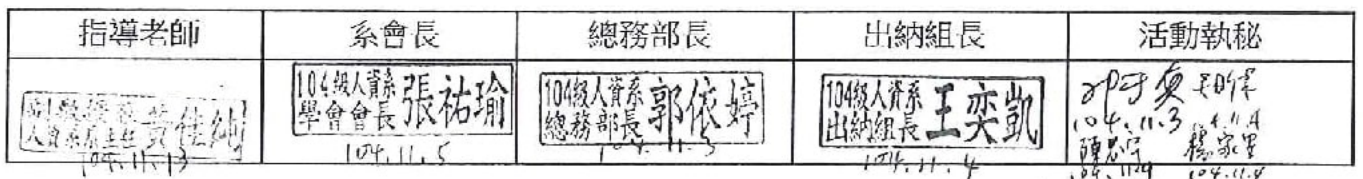 指導老師 系會長 總務部長 出納組長 活動執秘
副教授兼
人資系系主任
104.11.13
104級人資系
學會會長 張祐瑜
104.11.5
104級人資系
總務部長 郭依婷
104.11.5
104級人資系
出納組長 王奕凱
104.11.4
104.11.3
104.11.4
陳忠宇
104.11.4
104.11.4